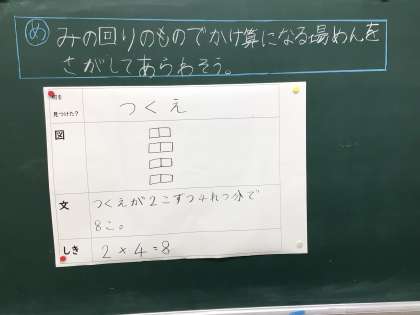 め みの回りのものでかけ算になる場めんを
さがしてあらわそう。
何を
見つけた？
つくえ
図
文
つくえが2こずつ4れつ分で
8こ。
しき
2×4=8